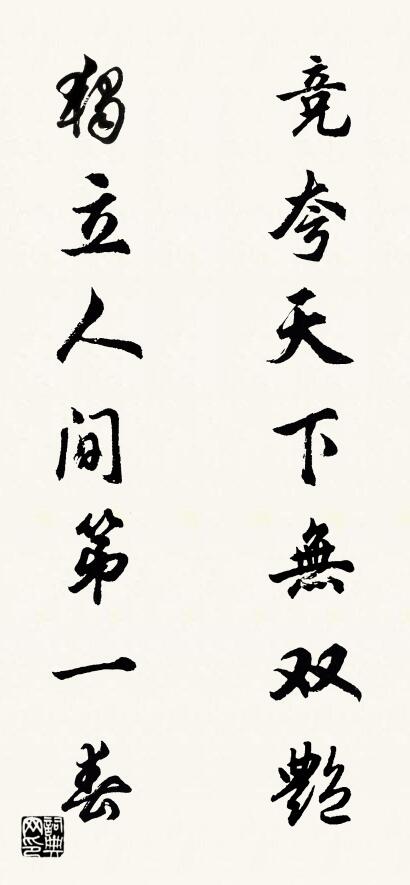 竞夸天下無双艷
獨立人间第一春
詞典
网印